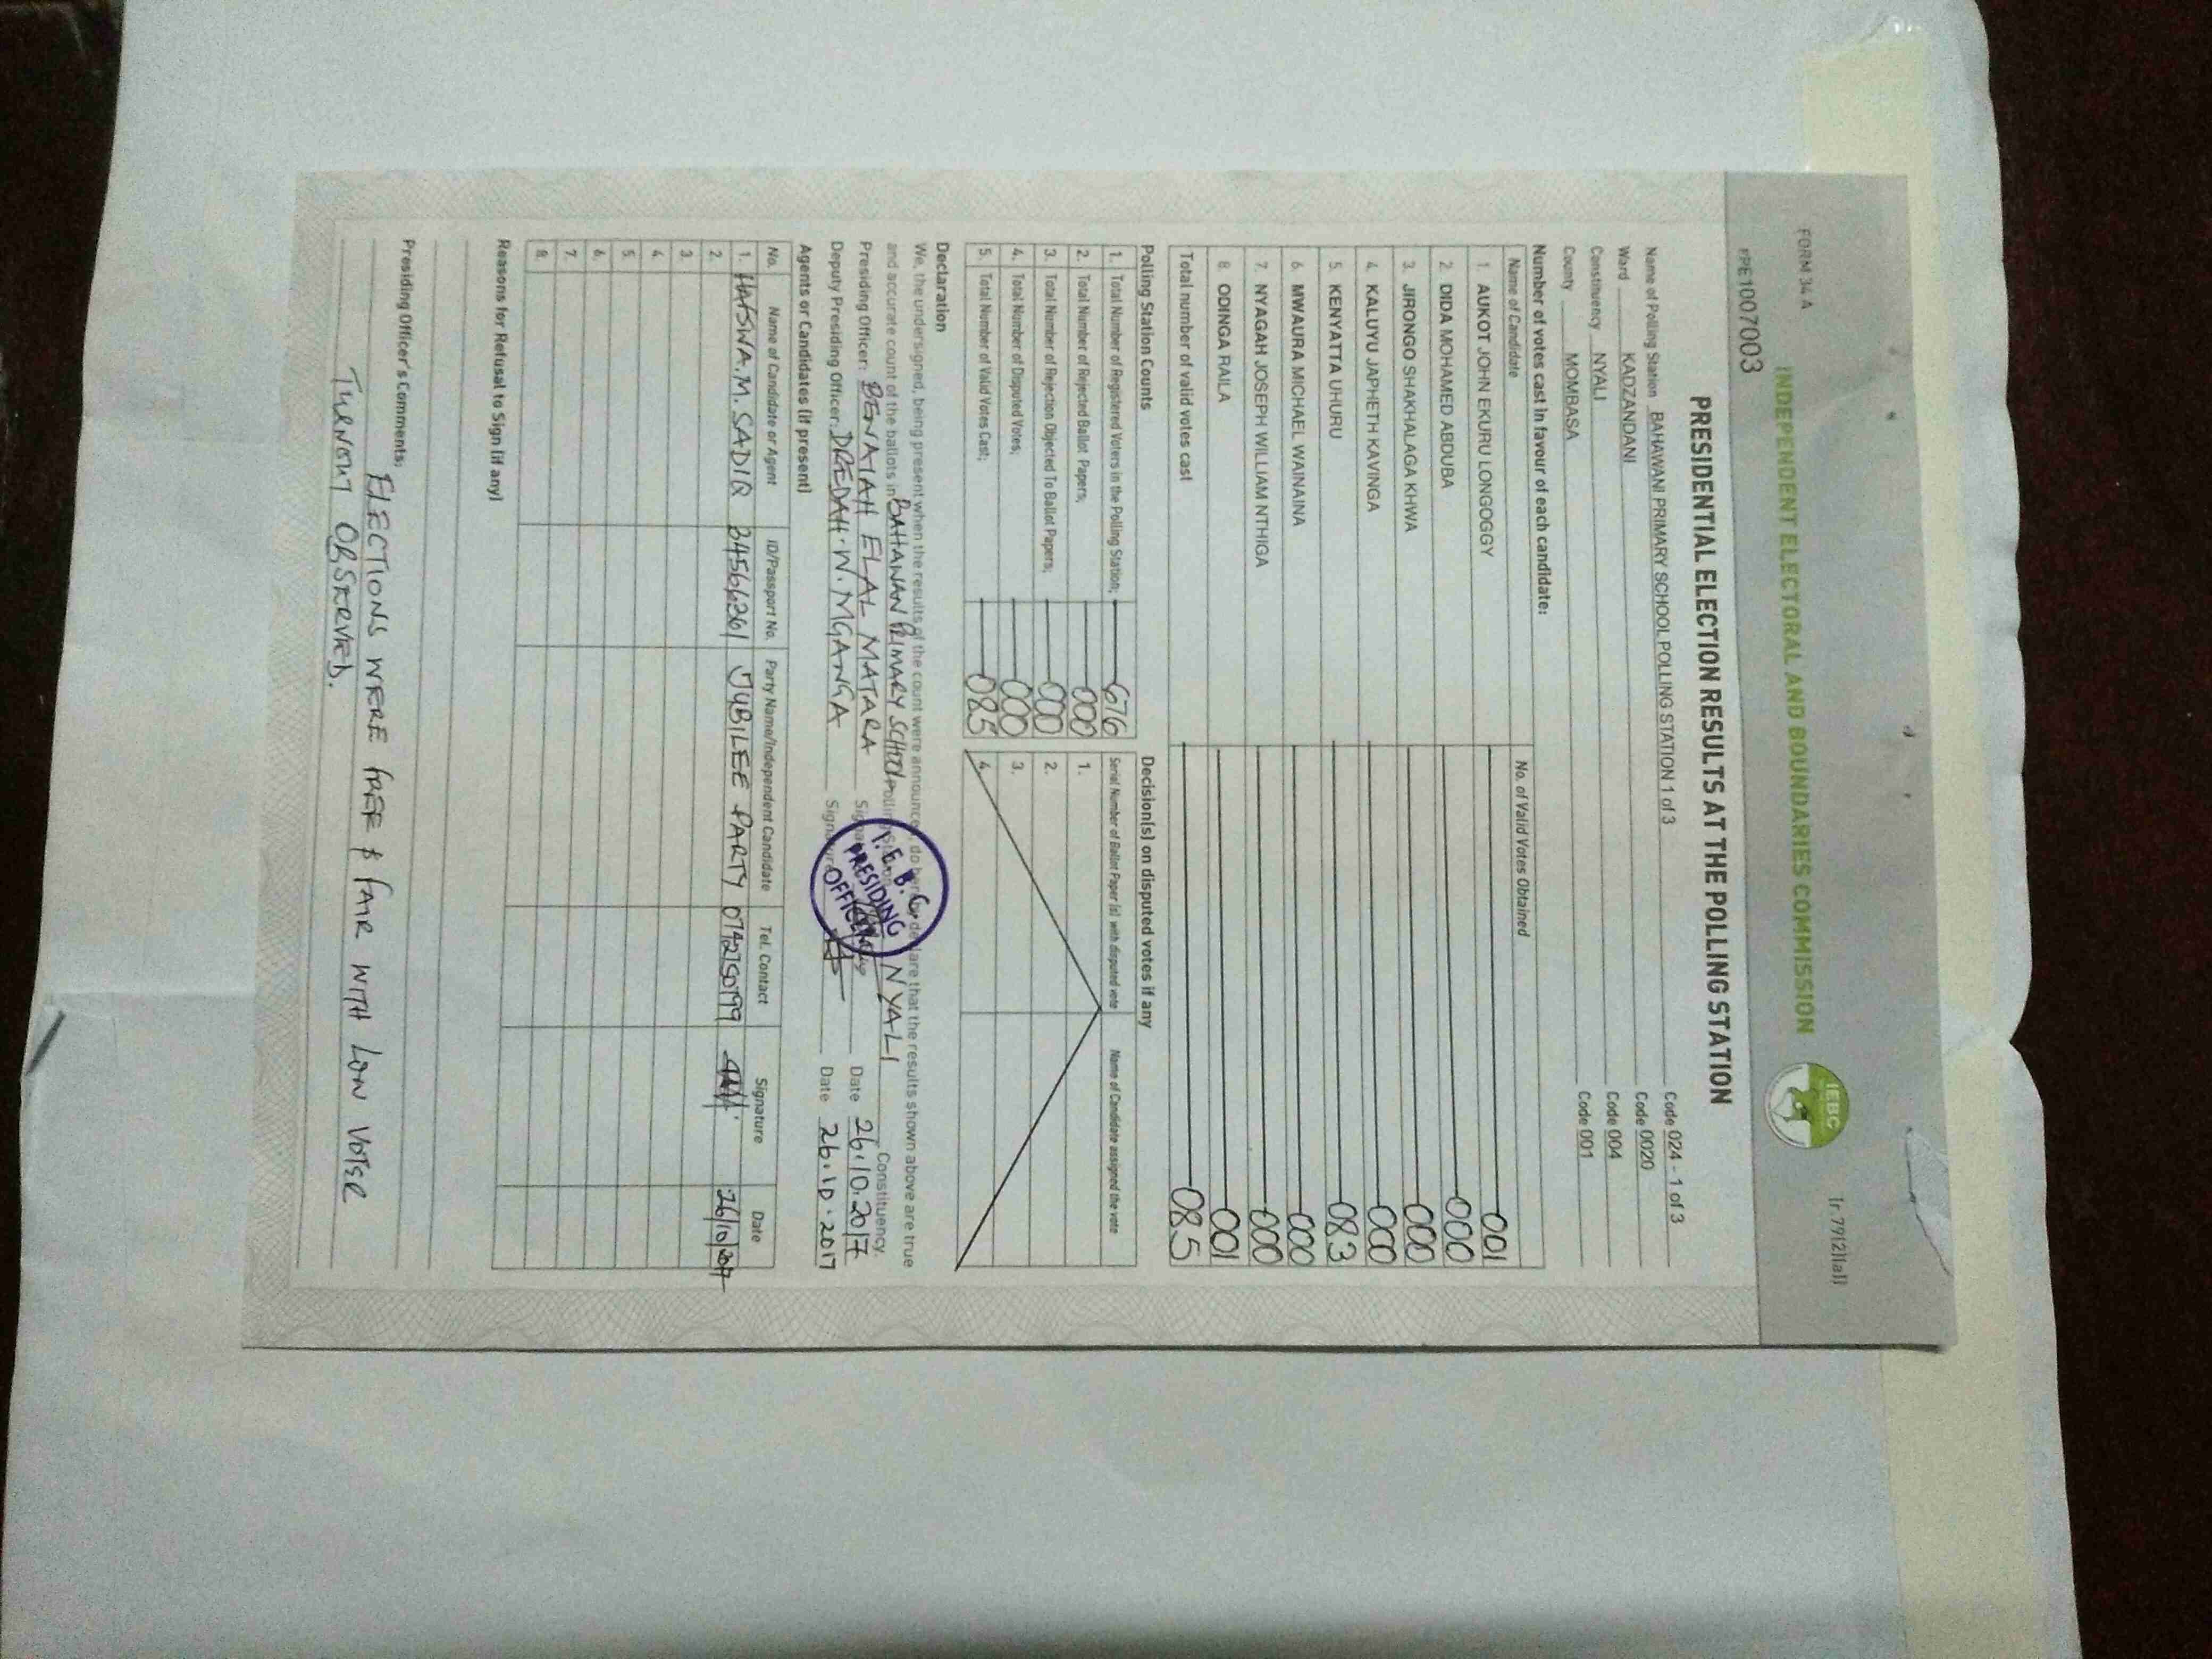 FORM 34 A
(r.79(2)(a))
INDEPENDENT ELECTORAL AND BOUNDARIES COMMISSION
IEBC
PRE1007003
PRESIDENTIAL ELECTION RESULTS AT THE POLLING STATION
Name of Polling Station BAHAWANI PRIMARY SCHOOL POLLING STATION 1 of 3 Code 024 - 1 of 3
Ward KADZANDANI Code 0020
Constituency NYALI Code 004
County MOMBASA Code 001
Number of votes cast in favour of each candidate:
Name of Candidate No. of Valid Votes Obtained
1. AUKOT JOHN EKURU LONGOGGY 001
2. DIDA MOHAMED ABDUBA 000
3. JIRONGO SHAKHALAGA KHWA 000
4. KALUYU JAPHETH KAVINGA 000
5. KENYATTA UHURU 083
6. MWAURA MICHAEL WAINAINA 000
7. NYAGAH JOSEPH WILLIAM NTHIGA 000
8. ODINGA RAILA 001
Total number of valid votes cast 085
Polling Station Counts
1. Total Number of Registered Voters in the Polling Station; 676
2. Total Number of Rejected Ballot Papers; 000
3. Total Number of Rejection Objected To Ballot Papers; 000
4. Total Number of Disputed Votes; 000
5. Total Number of Valid Votes Cast; 085
Decision(s) on disputed votes if any
Serial Number of Ballot Paper (s) with disputed vote Name of Candidate assigned the vote
1.
2.
3.
4.
Declaration
We, the undersigned, being present when the results of the count were announced, do hereby declare that the results shown above are true
and accurate count of the ballots in BAHANANI PRIMARY SCHOOL Polling Station NYALI Constituency.
Presiding Officer: BENAIAH ELAL MATARA Signature Date 26.10.2017
Deputy Presiding Officer: DREDAH.W.MGANGA Signature Date 26.10.2017
I.E.B.C
PRESIDING
OFFICER
Agents or Candidates (if present)
No. Name of Candidate or Agent ID/Passport No. Party Name/Independent Candidate Tel. Contact Signature Date
1. HAFSWA.M.SADIQ 34566361 JUBILEE PARTY 0742750199 26/10/2017
2.
3.
4.
5.
6.
7.
8.
Reasons for Refusal to Sign (if any)
Presiding Officer's Comments;
ELECTIONS WERE FREE & FAIR WITH LOW VOTER
TURNOUT OBSERVED.